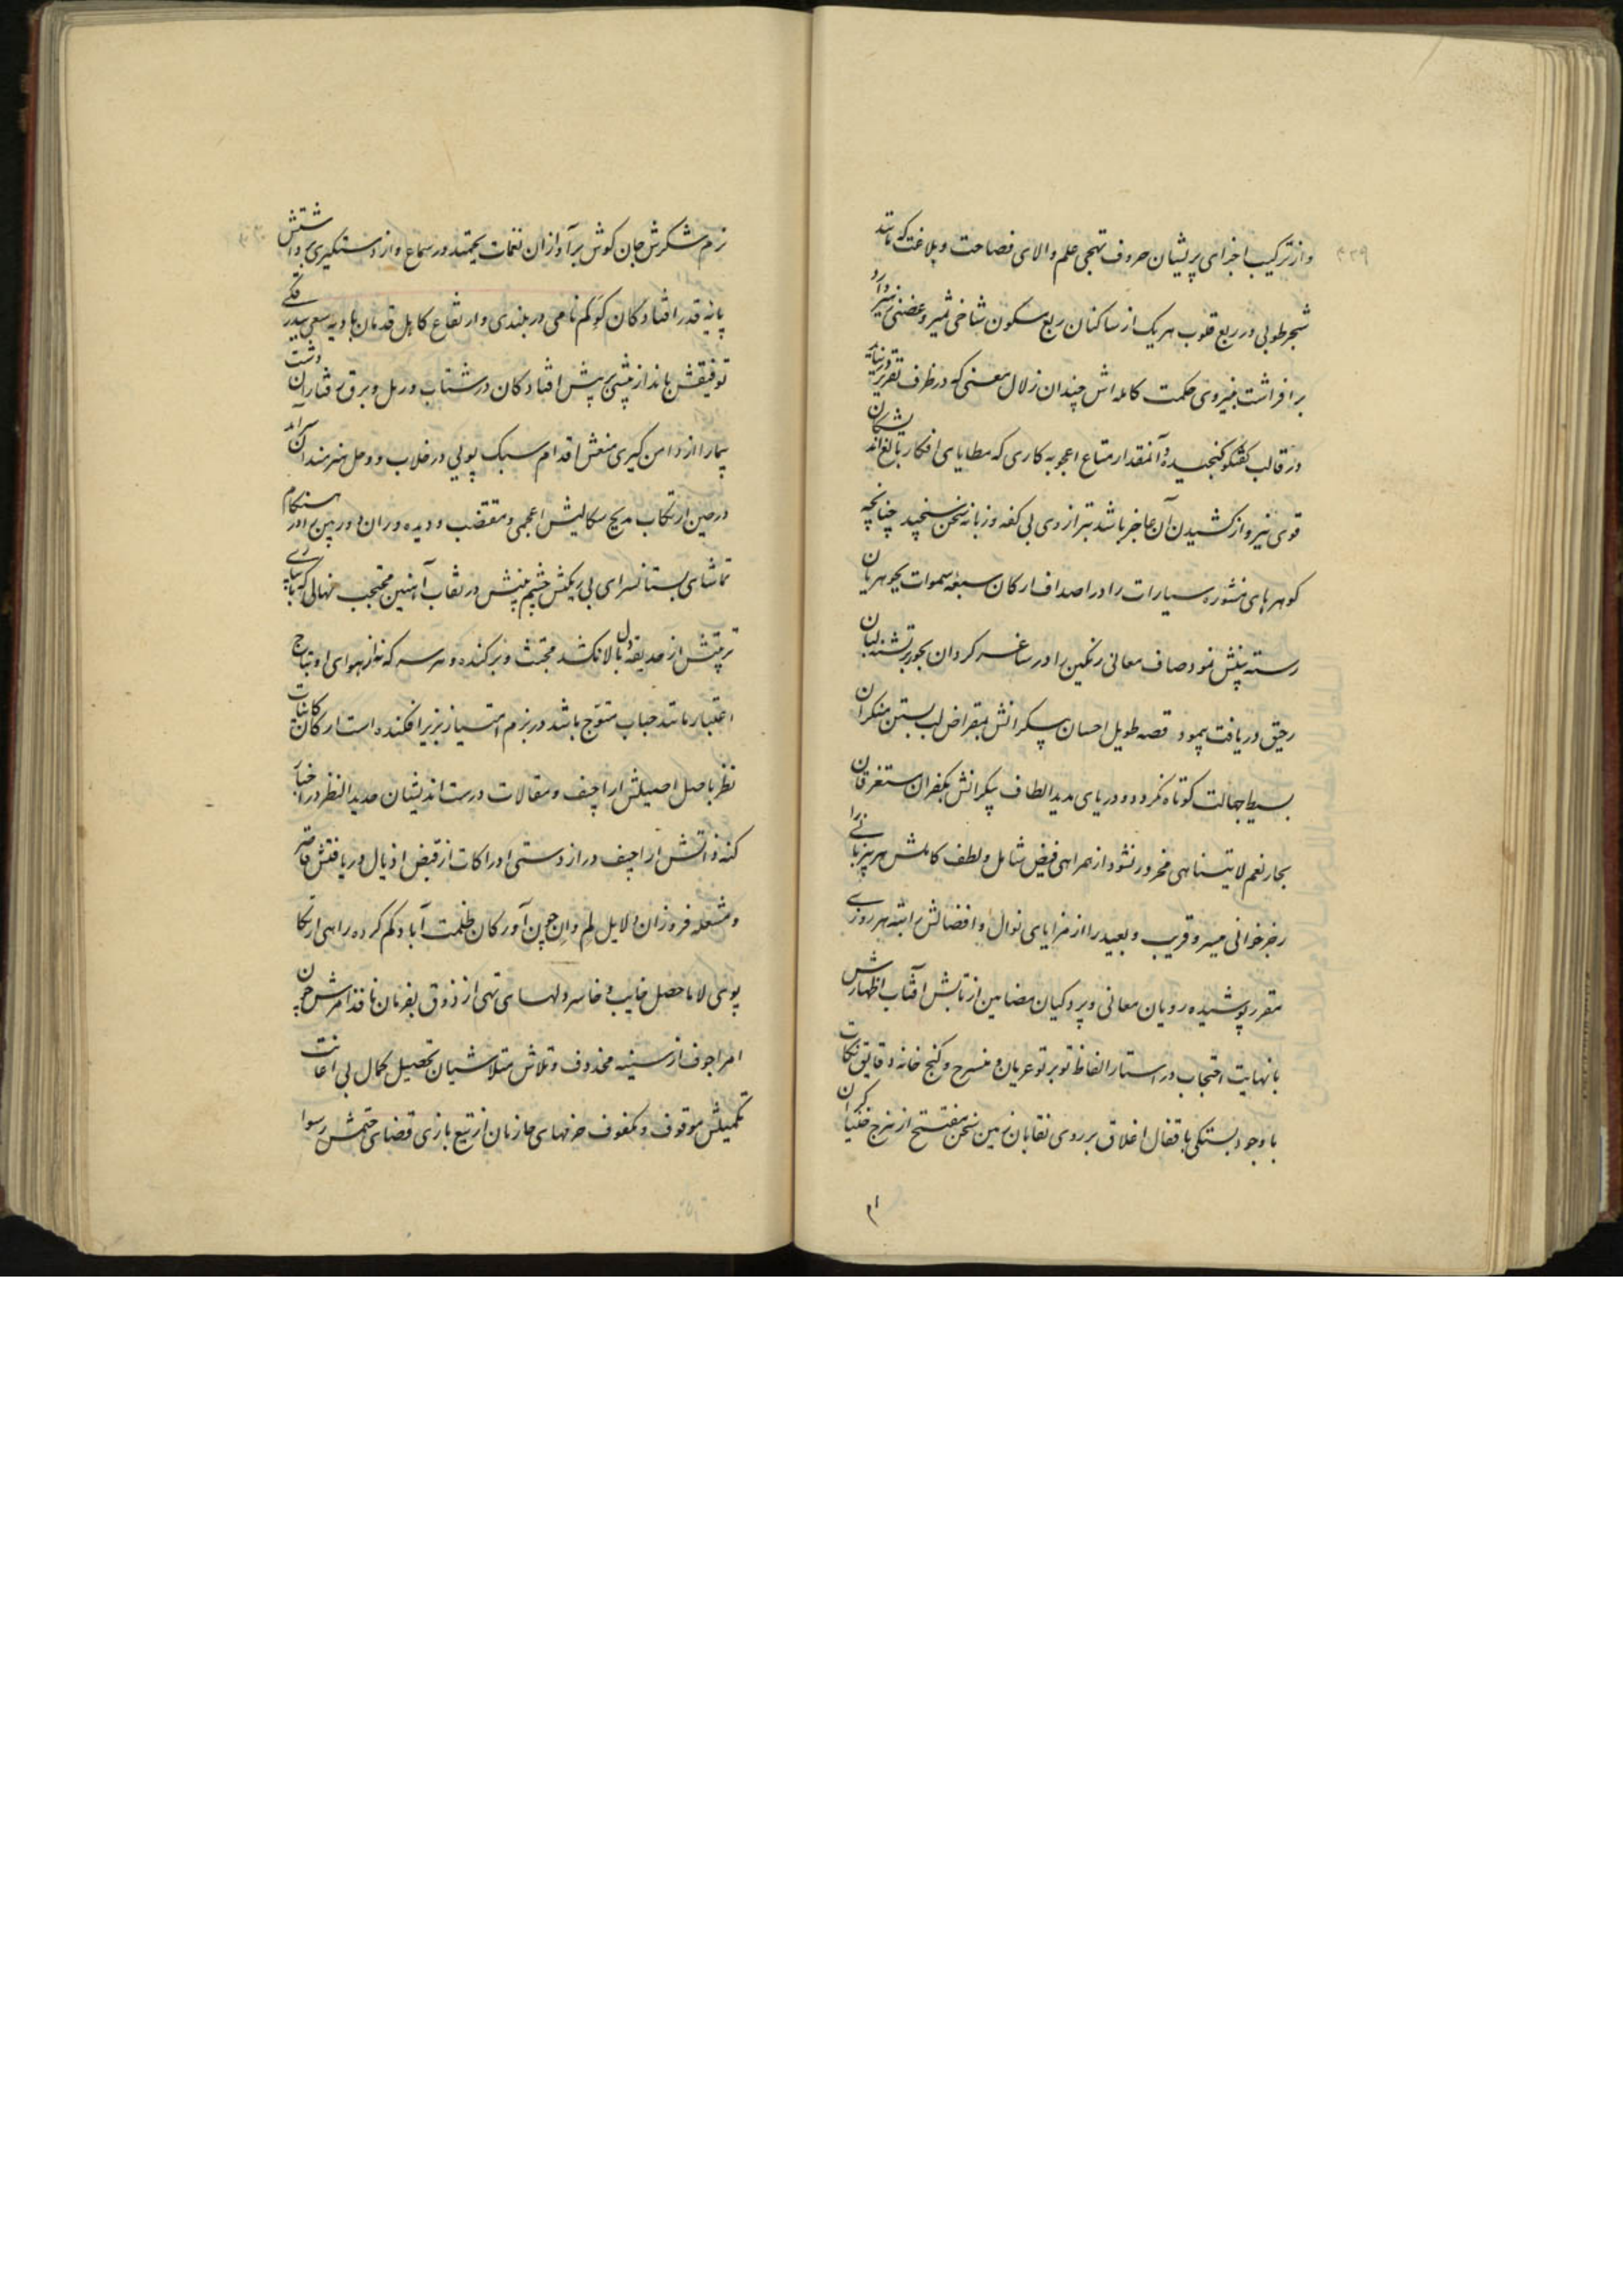 ۴۳۹
و از ترکیب اجزای پریشان حروف تهجی علم والای فصاحت و بلاغت که مانند
شجر طوبی در ربع قلوب هر یک از ساکنان ربع مسکون شاخی مثمر و غصنی
بر افراشت بنیروی حکمت کامله اش چندان زلال معنی که در ظرف تقریر
در قالب گفتگو گنجیده و آنمقدار متاع اعجوبه کاری که مطایای افکار بالغ
قوی نیرو از کشیدن آن عاجز باشد بترازوی بی کفه و زبانه سخن سنجید چنانچه
گوهرهای منثوره سیارات را در اصداف ارکان سبعه سموات بجوهریان
رسته بینش نمود صاف معانی رنگین را در ساغر گردان بحور بتشنه لبان
رحیق دریافت پیمود قصه طویل احسان بیکرانش بمقراض لب بستن منکران
بسیط جهالت کوتاه نگردد و دریای مدید الطاف بیکرانش بکفران مستغرقان
بحار نعم لایتناهی محرور نشود از همراهی فیض شامل و لطف کاملش هر بیزبانی را
رجز خوانی میسر و قریب و بعید را از مزایای نوال و افضالش راتبه هر روزی
مقرر پوشیده رویان معانی و پردگیان مضامین از تابش آفتاب اظهارش
با نهایت احتجاب در استار الفاظ تو بر تو عریان و منسرح و گنج خانه دقایق نکات
با وجود بستگی باقفال اغلاق بر روی نقابان زمین سخن مفتتح از هزج خنیاگران
بزم شکرش جان گوش بر آوازان نغمات یحتمد در سماع و از دستگیری برداشتش
پایه قدر افتادگان کو کم نامی در بلندی و ارتفاع کاهل قدمان بادیه سعی
توفیقش بانداز پیشی بر پیش افتادگان در شتاب و رمل و برق رفتاران دشت
پیما را از دامن گیری منعش اقدام سبک پویی در خلاب و وحل هنرمندان
در حین ارتکاب مدیح سگالیش اعمی و مقتضب و دیده وران دوربین را در هنگام
تماشای بستانسرای بی ریگش چشم بینش در نقاب آهنین محتجب نهالی که
تربیتش از حدیقه دل بالا نکشد مجتث و برکنده و هر سر که نه از هوای او بتاج
اعتبار مانند حباب متوج باشد در بزم امتیاز بزیر افکنده است ارکان کاینات
نظر باصل اصیلش اراجیف و مقالات درست اندیشان حدید النظر در اخبار
کنه ذاتش اراجیف دراز دستی ادراکات از قبض اذیال دریافتش قاصر
و مشعله فروزان دلایل لم و ان چون آورکان ظلمت آباد گم کرده راهی از تکا
پوی لا ماحصل خایب و خاسر دلهای تهی از ذوق بفرمان نافذ امرش چون
امر اجوف از سینه محذوف و تلاش متلاشیان تحصیل کمال بی اعانت
تکمیلش موقوف و مکفوف حرفهای جازمان از تیغ بازی قضای حتمش رسوا